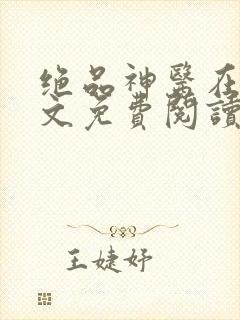 绝品神医在
文免費閱讀
王婕妤